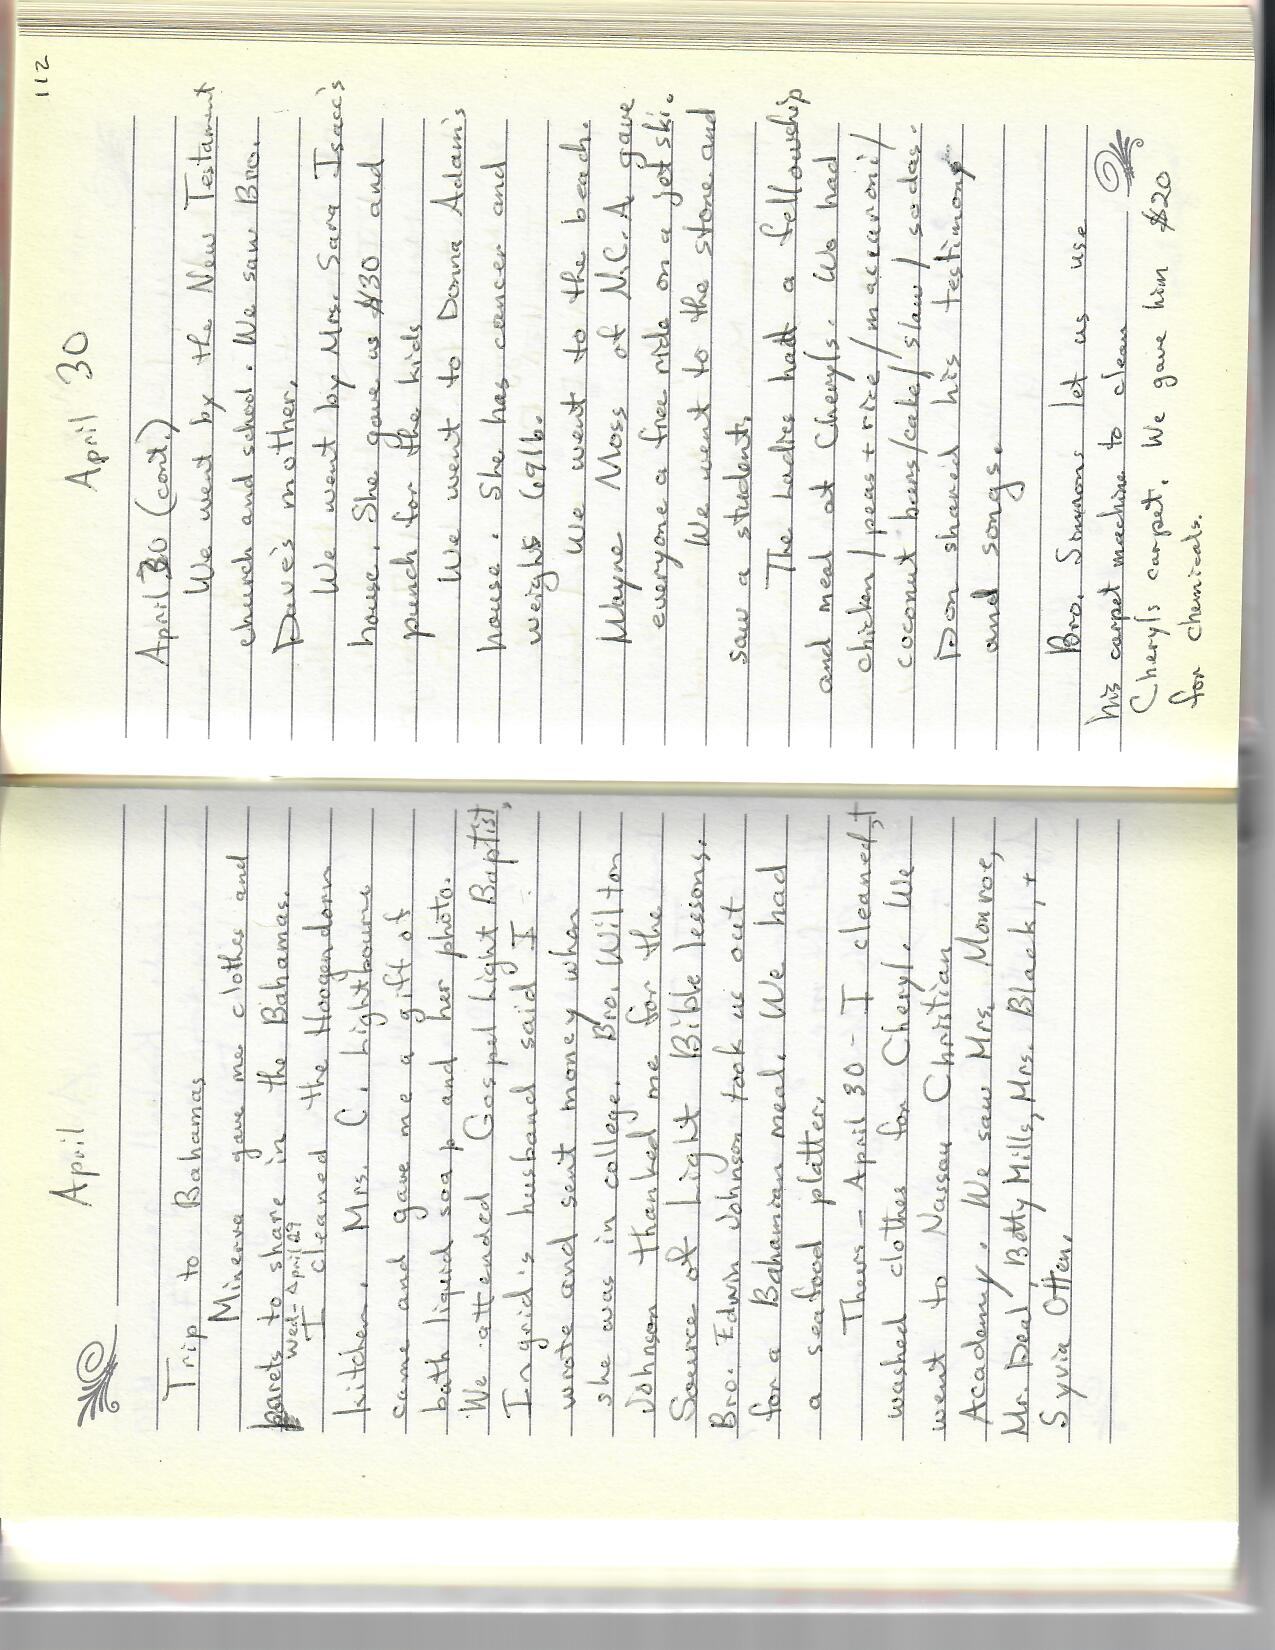 April
Trip to Bahamas
Minerva gave me clothes and
barets to share in the Bahamas.
Wed - April 29
I cleaned the Hoogendorn
kitchen. Mrs. C. Lightbourne
came and gave me a gift of
bath liquid soap and her photo.
We attended Gospel Light Baptist,
Ingrid's husband said I
wrote and sent money when
she was in college. Bro. Wilton
Johnson thanked me for the
Source of Light Bible lessons.
Bro. Edwin Johnson took us out
for a Bahamian meal. We had
a seafood platter.
Thurs - April 30 - I cleaned, +
washed clothes for Cheryl. We
went to Nassau Christian
Academy. We saw Mrs. Monroe,
Mr. Deal, Betty Mills, Mrs. Black, +
Syvia Otten.
112
April 30
April 30 (cont.)
We went by the New Testament
church and school. We saw Bro.
Dave's mother.
We went by Mrs. Sara Isacc's
house. She gave us $30 and
punch for the kids
We went to Donna Adam's
house. She has cancer and
weighs 69 lb.
We went to the beach.
Wayne Moss of N.C.A. gave
everyone a free ride on a jet ski.
We went to the store and
saw a student.
The ladies had a fellowship
and meal at Cheryls. We had
chicken/peas + rice/macaroni/
coconut bens/cake/slaw/sodas.
Don shared his testimony
and songs.
Bro. Simmons let us use
his carpet machine to clean
Cheryls carpet. We gave him $20
for chemicals.